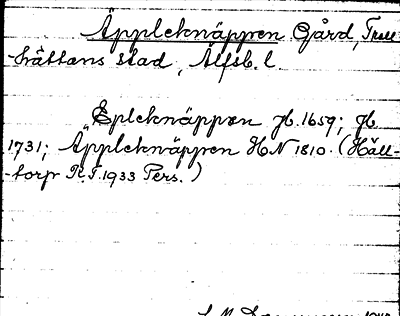 Äppleknäppen Gård, Troll
hättans stad, Älfsb. l.
Epleknäppen Jb. 1659; Jb
1731; Äppleknäppen HN 1810. (Häll-
-torp R.T. 1933 Pers.)